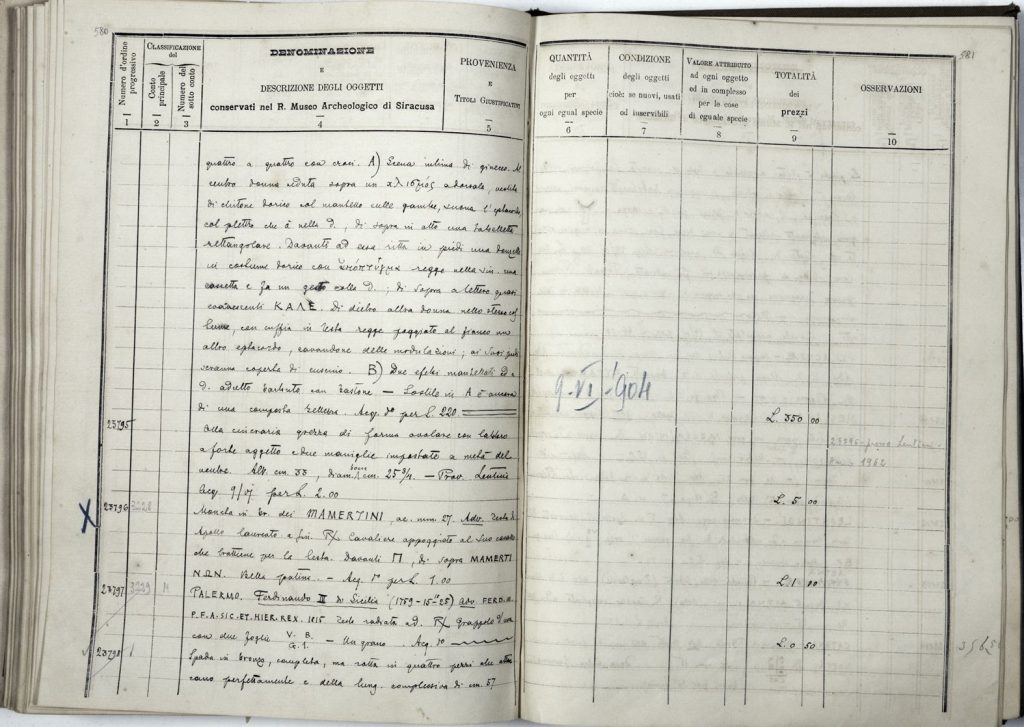 580
Numero d'ordine progressivo
CLASSIFICAZIONE
del
Conto principale
Numero del sotto conto
DENOMINAZIONE
E
DESCRIZIONE DEGLI OGGETTI
conservati nel R. Museo Archeologico di Siracusa
PROVENIENZA
E
TITOLI GIUSTIFICATIVI
1 2 3 4 5
quattro a quattro con croci. A) Scena intima di gineceo. Al
centro donna seduta sopra un a dorsale, vestita
di chitone dorico col mantello sulle gambe, suona l'
col plettro che à nella d. ; di sopra in alto una
rettangolare. Davanti ad essa ritta in piedi una
in costume dorico con regge nella sin. una
cassetta e fa un gesto colla d. ; di sopra a lettere quasi
ΚΑΛΕ. Di dietro altra donna nello stesso cos
tume, con cuffia in testa regge poggiato al fianco un
altro , cavandone delle modulazioni ; ai suoi piedi
coperta di cuscino. B) Due efebi mantellati ed a
d. barbuto con bastone – Lo stile in A è ancora
di una composta bellezza. Acq. per L. 220.
23795
Olla cineraria grezza di forma ovolare con labbro
a forte aggetto e due maniglie impostate a metà del
ventre. Alt. cm. 33, diam. bocca cm. 25 3/4. – Prov. Lentini
Acq. per L. 2.00
X 23796 3228
Moneta in br. dei MAMERTINI, ae. mm. 27. Adv. Testa di
Apollo laureato a sin. Rx Cavaliere appoggiato al suo cavallo
che trattiene per la testa. Davanti Π, di sopra ΜΑΜΕΡΤΙ
ΝΩΝ. Bella patina. – Acq. per L. 1.00
23797 3229 M
PALERMO. Ferdinando III di Sicilia Adv. FERD. III.
P. F. A. SIC. ET. HIER. REX. 1815 Testa radiata a d. Rx Grappolo d'uva
con due foglie V. B.
G. 1. – Un grano. Acq.
23798
Spada in bronzo, completa, ma rotta in quattro pezzi che attac
cano perfettamente e della lung. complessiva di cm. 57
581
QUANTITÀ
degli oggetti
per
ogni egual specie
CONDIZIONE
degli oggetti
cioè: se nuovi, usati
od inservibili
VALORE ATTRIBUITO
ad ogni oggetto
od in complesso
per le cose
di eguale specie
TOTALITÀ
dei
prezzi
OSSERVAZIONI
6 7 8 9 10
9-VI-904
L. 350 00
Lentini
1962
L. 5 00
L. 1 00
L. 0 50